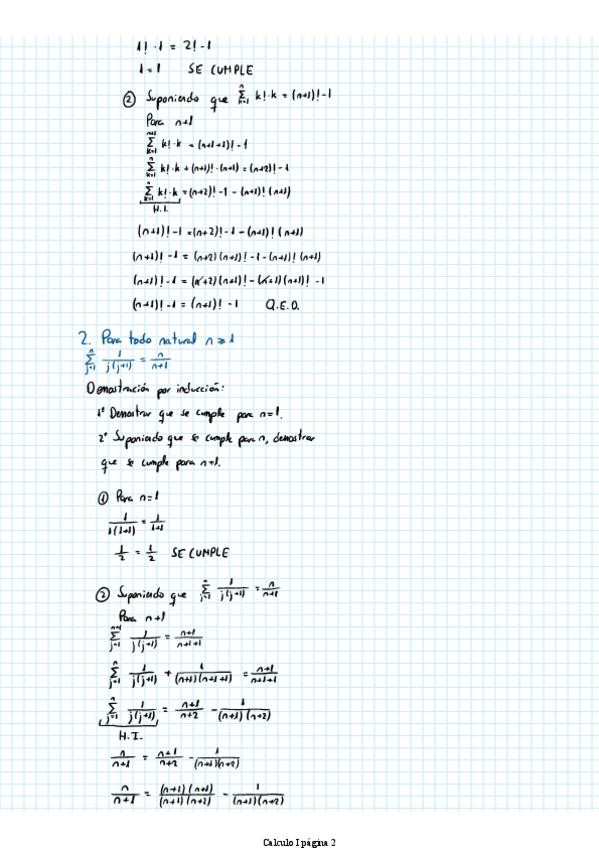 1! · 1 = 2! - 1
1 = 1 SE CUMPLE
② Suponiendo que ∑_{k=1}^{n} k! · k = (n+1)! - 1
Para n+1
∑_{k=1}^{n+1} k! · k = (n+1+1)! - 1
∑_{k=1}^{n} k! · k + (n+1)! · (n+1) = (n+2)! - 1
∑_{k=1}^{n} k! · k = (n+2)! - 1 - (n+1)! (n+1)
H.I.
(n+1)! - 1 = (n+2)! - 1 - (n+1)! (n+1)
(n+1)! - 1 = (n+2)(n+1)! - 1 - (n+1)! (n+1)
(n+1)! - 1 = (n+2)(n+1)! - (n+1)(n+1)! - 1
(n+1)! - 1 = (n+1)! - 1 Q.E.D.
2. Para todo natural n ≥ 1
∑_{j=1}^{n} 1/(j(j+1)) = n/(n+1)
Demostración por inducción:
1º Demostrar que se cumple para n=1.
2º Suponiendo que se cumple para n, demostrar
que se cumple para n+1.
① Para n=1
1/(1(1+1)) = 1/(1+1)
1/2 = 1/2 SE CUMPLE
② Suponiendo que ∑_{j=1}^{n} 1/(j(j+1)) = n/(n+1)
Para n+1
∑_{j=1}^{n+1} 1/(j(j+1)) = (n+1)/(n+1+1)
∑_{j=1}^{n} 1/(j(j+1)) + 1/((n+1)(n+1+1)) = (n+1)/(n+1+1)
∑_{j=1}^{n} 1/(j(j+1)) = (n+1)/(n+2) - 1/((n+1)(n+2))
H.I.
n/(n+1) = (n+1)/(n+2) - 1/((n+1)(n+2))
n/(n+1) = ((n+1)(n+1))/((n+1)(n+2)) - 1/((n+1)(n+2))
Calculo I página 2